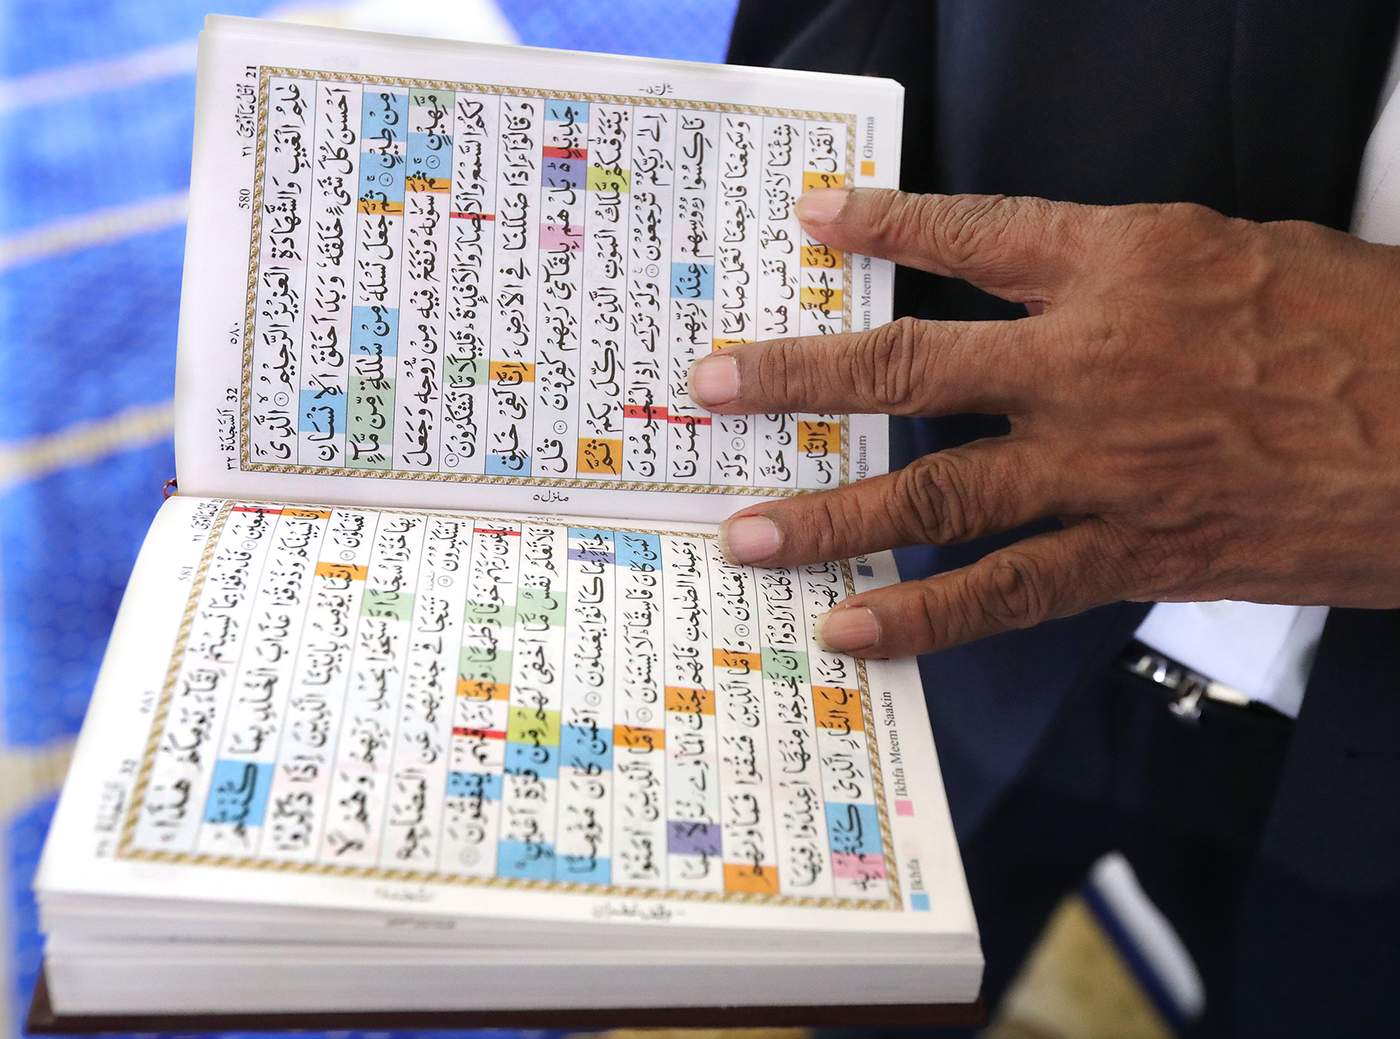 اتل ما اوحی 21
580
السجدة 32
عٰلِمُ الْغَيْبِ وَالشَّهَادَةِ الْعَزِيْزُ الرَّحِيْمُ ۙ۶ الَّذِيْٓ
اَحْسَنَ كُلَّ شَيْءٍ خَلَقَهٗ وَبَدَاَ خَلْقَ الْاِنْسَانِ
مِنْ طِيْنٍ ۷ ثُمَّ جَعَلَ نَسْلَهٗ مِنْ سُلٰلَةٍ مِّنْ مَّآءٍ
مَّهِيْنٍ ۸ ثُمَّ سَوّٰىهُ وَنَفَخَ فِيْهِ مِنْ رُّوْحِهٖ وَجَعَلَ
لَكُمُ السَّمْعَ وَالْاَبْصَارَ وَالْاَفْـِٕدَةَ ؕ قَلِيْلًا مَّا تَشْكُرُوْنَ ۹
وَقَالُوْٓا ءَاِذَا ضَلَلْنَا فِي الْاَرْضِ ءَاِنَّا لَفِيْ خَلْقٍ
جَدِيْدٍ ؕ بَلْ هُمْ بِلِقَآئِ رَبِّهِمْ كٰفِرُوْنَ ۱۰ قُلْ
يَتَوَفّٰىكُمْ مَّلَكُ الْمَوْتِ الَّذِيْ وُكِّلَ بِكُمْ ثُمَّ
اِلٰى رَبِّكُمْ تُرْجَعُوْنَ ۱۱ وَلَوْ تَرٰٓى اِذِ الْمُجْرِمُوْنَ
نَاكِسُوْا رُءُوْسِهِمْ عِنْدَ رَبِّهِمْ ؕ رَبَّنَآ اَبْصَرْنَا
وَسَمِعْنَا فَارْجِعْنَا نَعْمَلْ صَالِحًا وَلَوْ
شِئْنَا لَاٰتَيْنَا كُلَّ نَفْسٍ هُدٰىهَا حَقَّ
الْقَوْلُ جَهَنَّمَ وَالنَّاسِ
منزل ۵
Ghunna
581
32
اَجْمَعِيْنَ ۱۳ فَذُوْقُوْا بِمَا نَسِيْتُمْ لِقَآءَ يَوْمِكُمْ هٰذَا
اِنَّا نَسِيْنٰكُمْ وَذُوْقُوْا عَذَابَ الْخُلْدِ بِمَا كُنْتُمْ
تَعْمَلُوْنَ ۱۴ اِنَّمَا يُؤْمِنُ بِاٰيٰتِنَا الَّذِيْنَ اِذَا ذُكِّرُوْا
بِهَا خَرُّوْا سُجَّدًا وَّسَبَّحُوْا بِحَمْدِ رَبِّهِمْ وَهُمْ لَا
يَسْتَكْبِرُوْنَ ۱۵ تَتَجَافٰى جُنُوْبُهُمْ عَنِ الْمَضَاجِعِ
يَدْعُوْنَ رَبَّهُمْ خَوْفًا وَّطَمَعًا وَّمِمَّا رَزَقْنٰهُمْ يُنْفِقُوْنَ ۱۶
فَلَا تَعْلَمُ نَفْسٌ مَّآ اُخْفِيَ لَهُمْ مِّنْ قُرَّةِ اَعْيُنٍ
جَزَآءًۢ بِمَا كَانُوْا يَعْمَلُوْنَ ۱۷ اَفَمَنْ كَانَ مُؤْمِنًا
كَمَنْ كَانَ فَاسِقًا لَا يَسْتَوٗنَ ۱۸ اَمَّا الَّذِيْنَ اٰمَنُوْا
وَعَمِلُوا الصّٰلِحٰتِ فَلَهُمْ جَنّٰتُ الْمَاْوٰى نُزُلًۢا بِمَا
يَعْمَلُوْنَ ۱۹ وَاَمَّا الَّذِيْنَ فَسَقُوْا فَمَاْوٰىهُمُ
كُلَّمَآ اَرَادُوْٓا اَنْ يَّخْرُجُوْا مِنْهَآ اُعِيْدُوْا فِيْهَا
لَهُمْ عَذَابَ النَّارِ الَّذِيْ كُنْتُمْ بِهٖ
Ikhfa Meem Saakin
Ikhfa